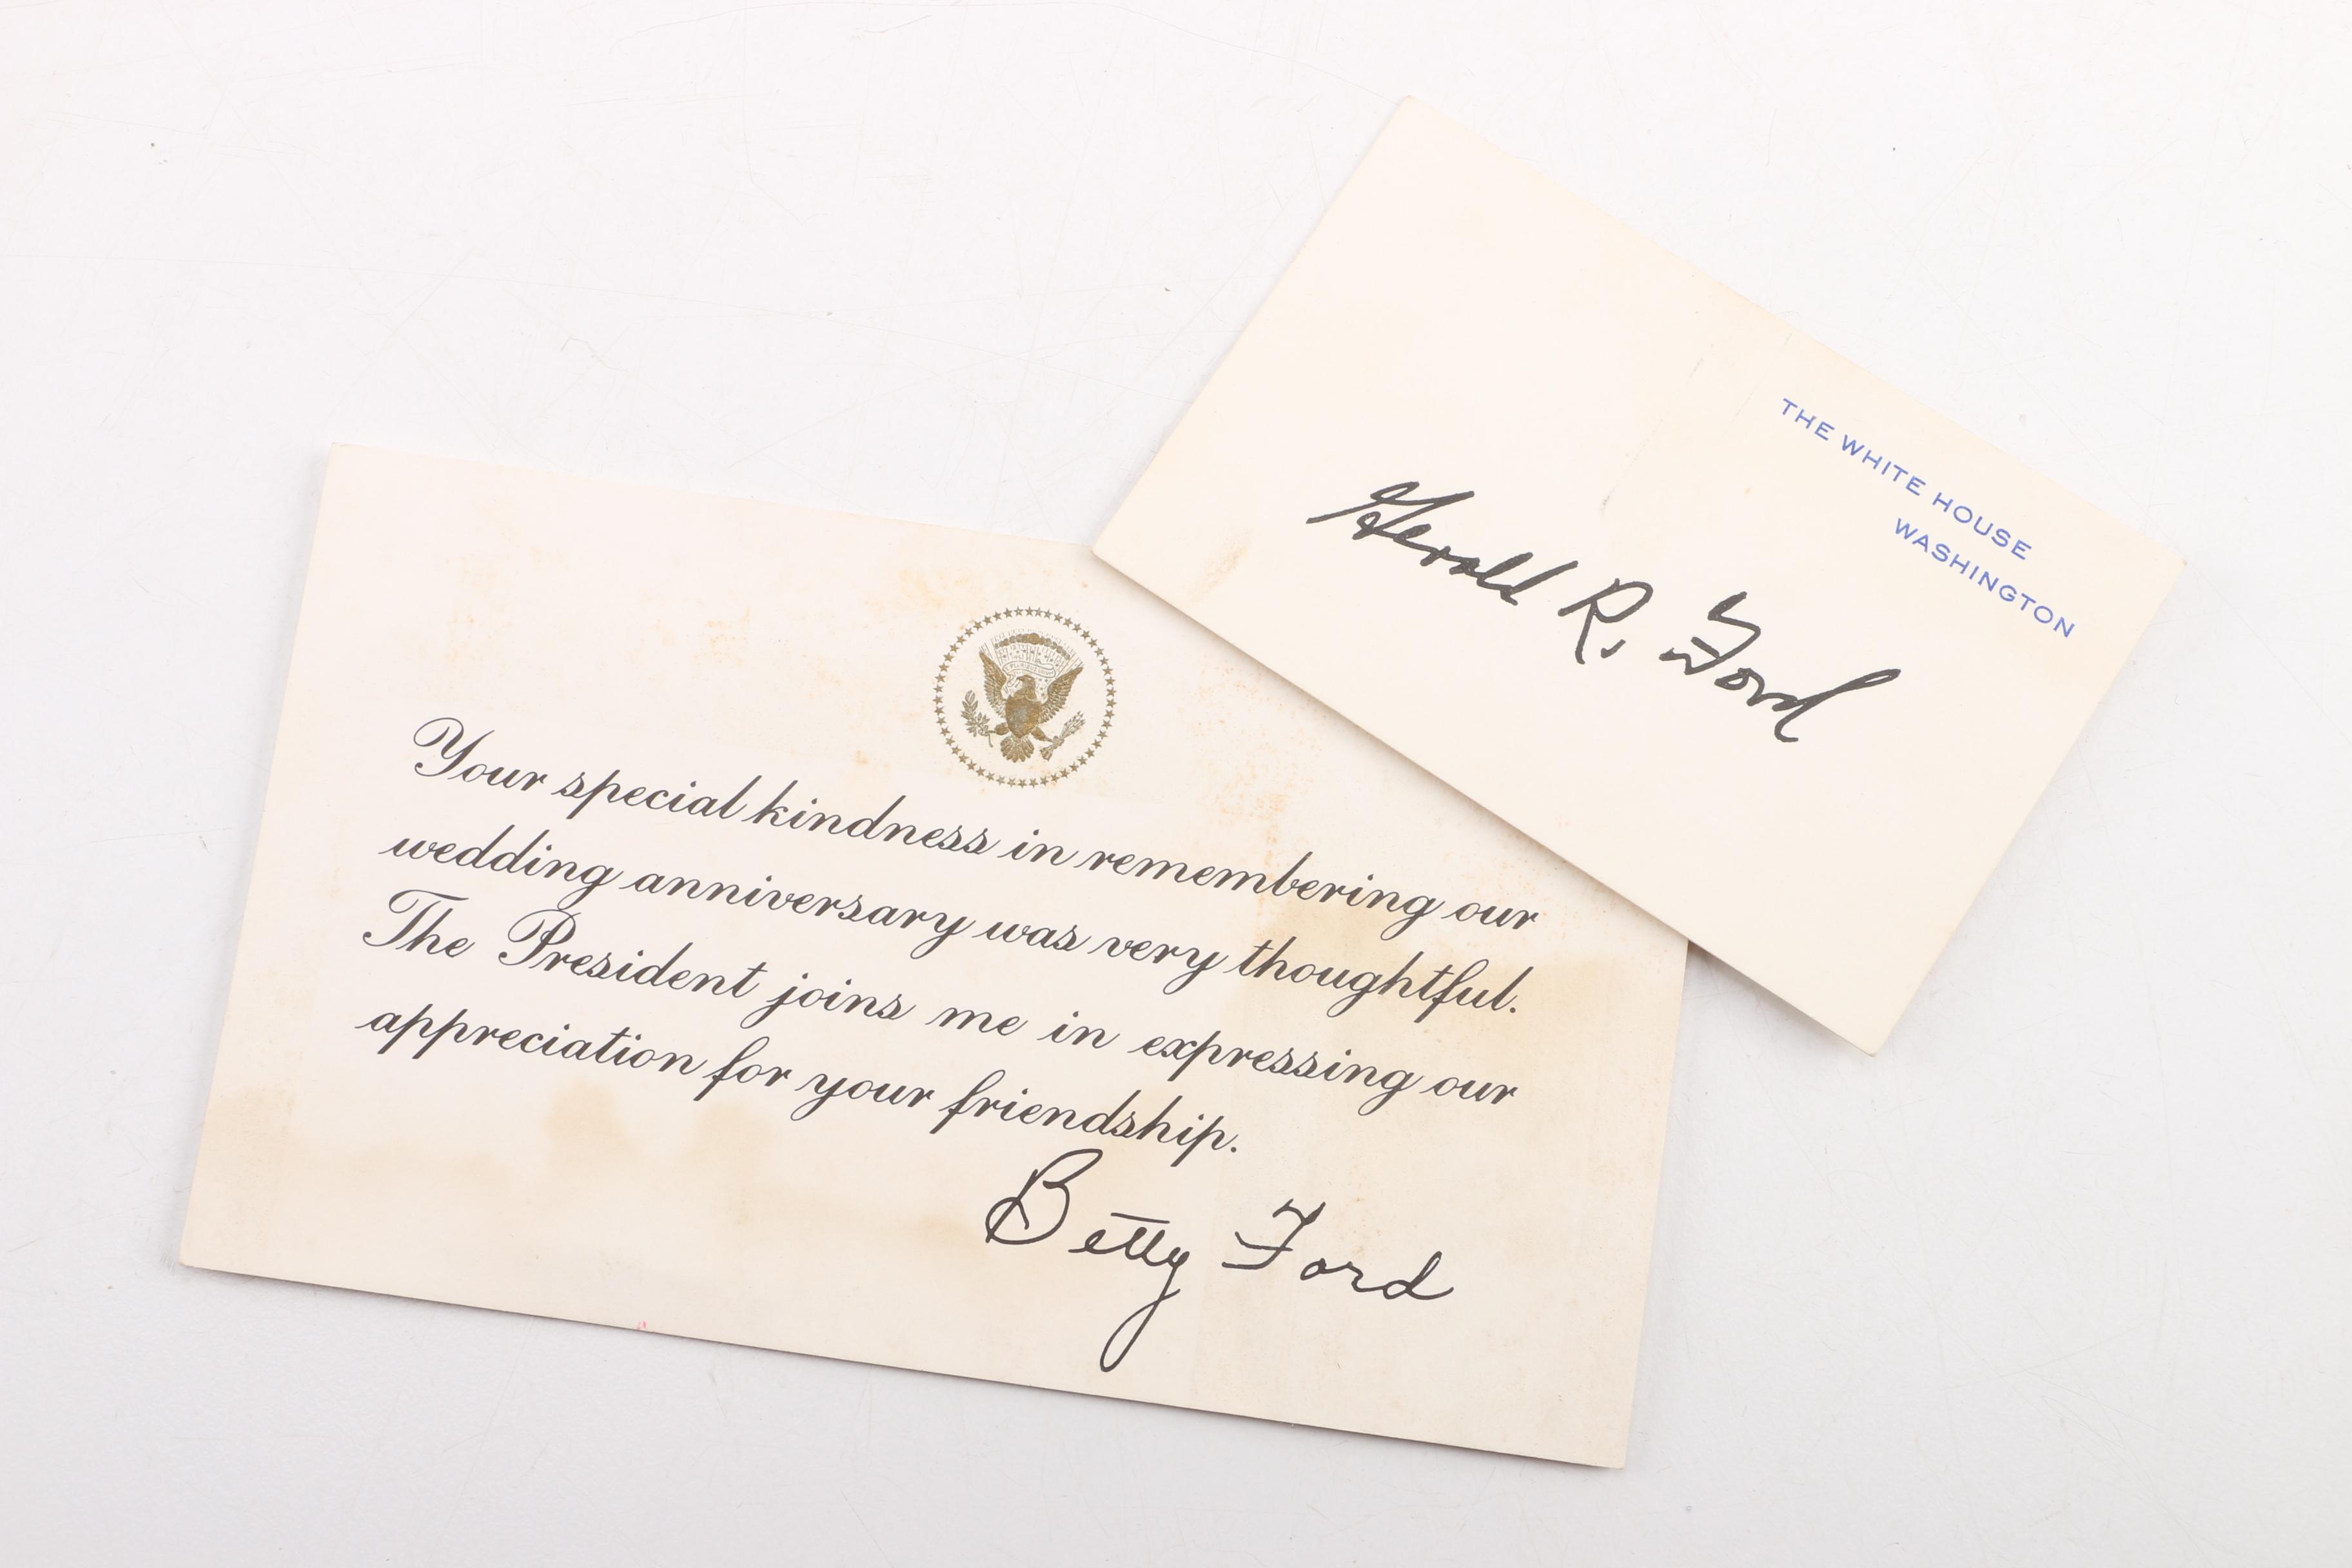 THE WHITE HOUSE
WASHINGTON
Gerald R. Ford
Your special kindness in remembering our
wedding anniversary was very thoughtful.
The President joins me in expressing our
appreciation for your friendship.
Betty Ford